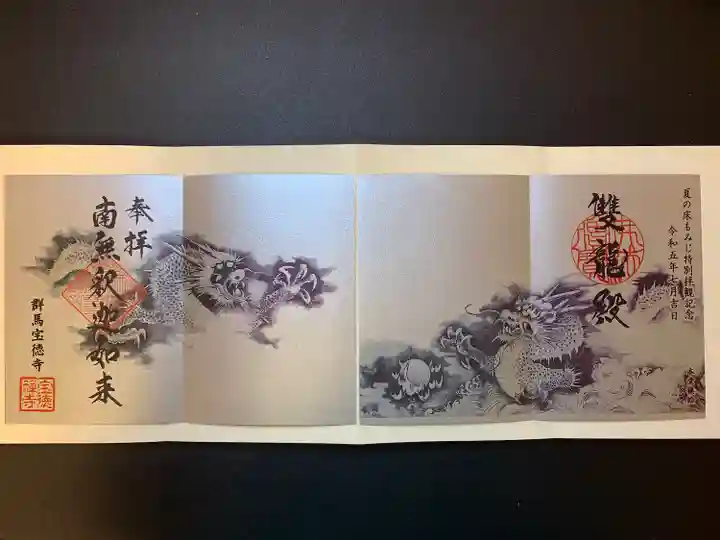 夏の床もみじ特別拝観記念
令和五年七月吉日
雙龍殿
奉拝
南無釈迦如来
群馬宝徳寺
宝徳
禅寺